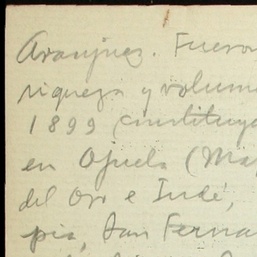 Aranjuez. Fueron
riqueza y volume
1899 constituye
en Ojuela (Map
del Oro e Indé,
pia, San Ferna